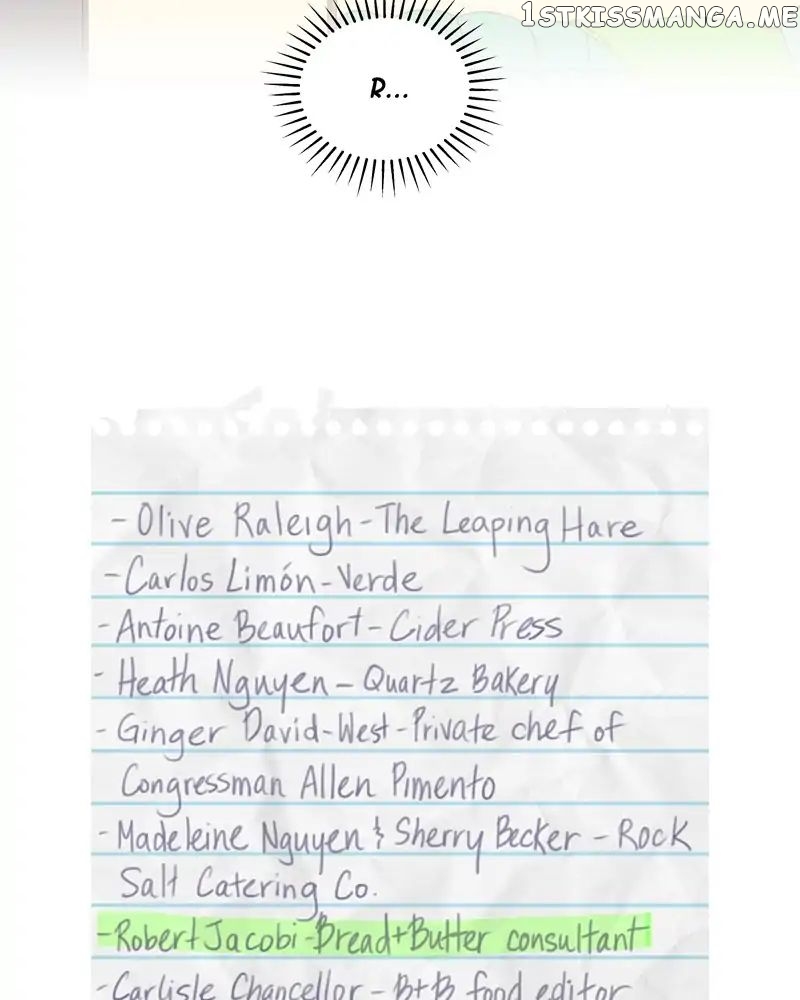 1STKISSMANGA.ME
R...
- Olive Raleigh - The Leaping Hare
- Carlos Limón - Verde
- Antoine Beaufort - Cider Press
- Heath Nguyen - Quartz Bakery
- Ginger David-West - Private chef of
Congressman Allen Pimento
- Madeleine Nguyen & Sherry Becker - Rock
Salt Catering Co.
- Robert Jacobi - Bread+Butter consultant
- Carlisle Chancellor - B+B food editor